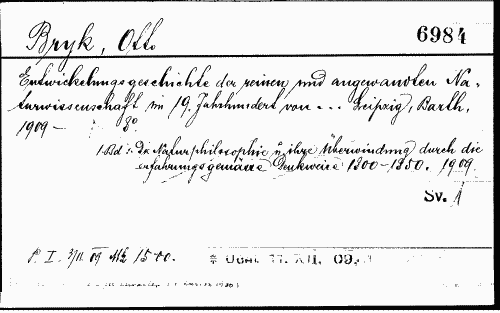 Bryk, Otto
6984
Entwickelungsgeschichte der reinen und angewandten Na-
turwissenschaft im 19. Jahrhundert von ... Leipzig, Barth,
1909 - 8°.
1. Bd.: Die Naturphilosophie u. ihre Überwindung durch die
erfahrungsgemässe Denkweise 1800-1850. 1909.
Sv. 1
P. I. 09 1500.
XII. 09.